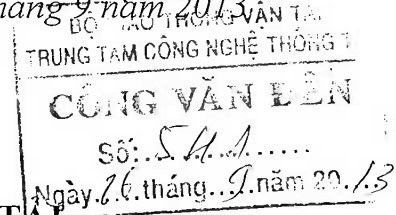 tháng 9 năm 2013
BỘ GIAO THÔNG VẬN TẢI
TRUNG TÂM CÔNG NGHỆ THÔNG T
CÔNG VĂN ĐẾN
Số:
Ngày 26 tháng 9 năm 2013
TẢI